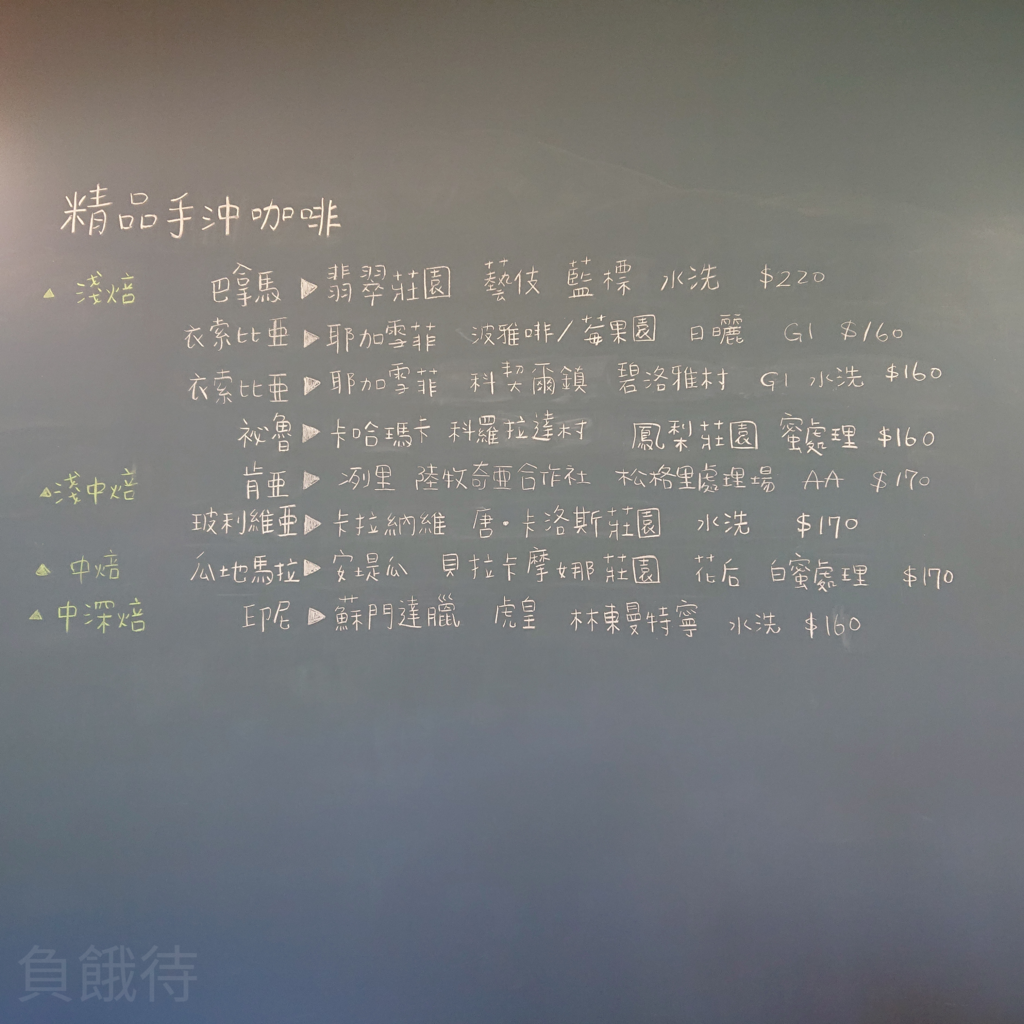 精品手沖咖啡
▲ 淺焙 巴拿馬 ▶ 翡翠莊園 藝伎 藍標 水洗 $220
衣索比亞 ▶ 耶加雪菲 波雅啡/莓果園 日曬 G1 $160
衣索比亞 ▶ 耶加雪菲 科契爾鎮 碧洛雅村 G1 水洗 $160
祕魯 ▶ 卡哈瑪卡 科羅拉達村 鳳梨莊園 蜜處理 $160
▲ 淺中焙 肯亞 ▶ 冽里 陸牧奇亞合作社 松格里處理場 AA $170
玻利維亞 ▶ 卡拉納維 唐·卡洛斯莊園 水洗 $170
▲ 中焙 瓜地馬拉 ▶ 安提瓜 貝拉卡摩娜莊園 花后 白蜜處理 $170
▲ 中深焙 印尼 ▶ 蘇門達臘 虎皇 林東曼特寧 水洗 $160
負餓待